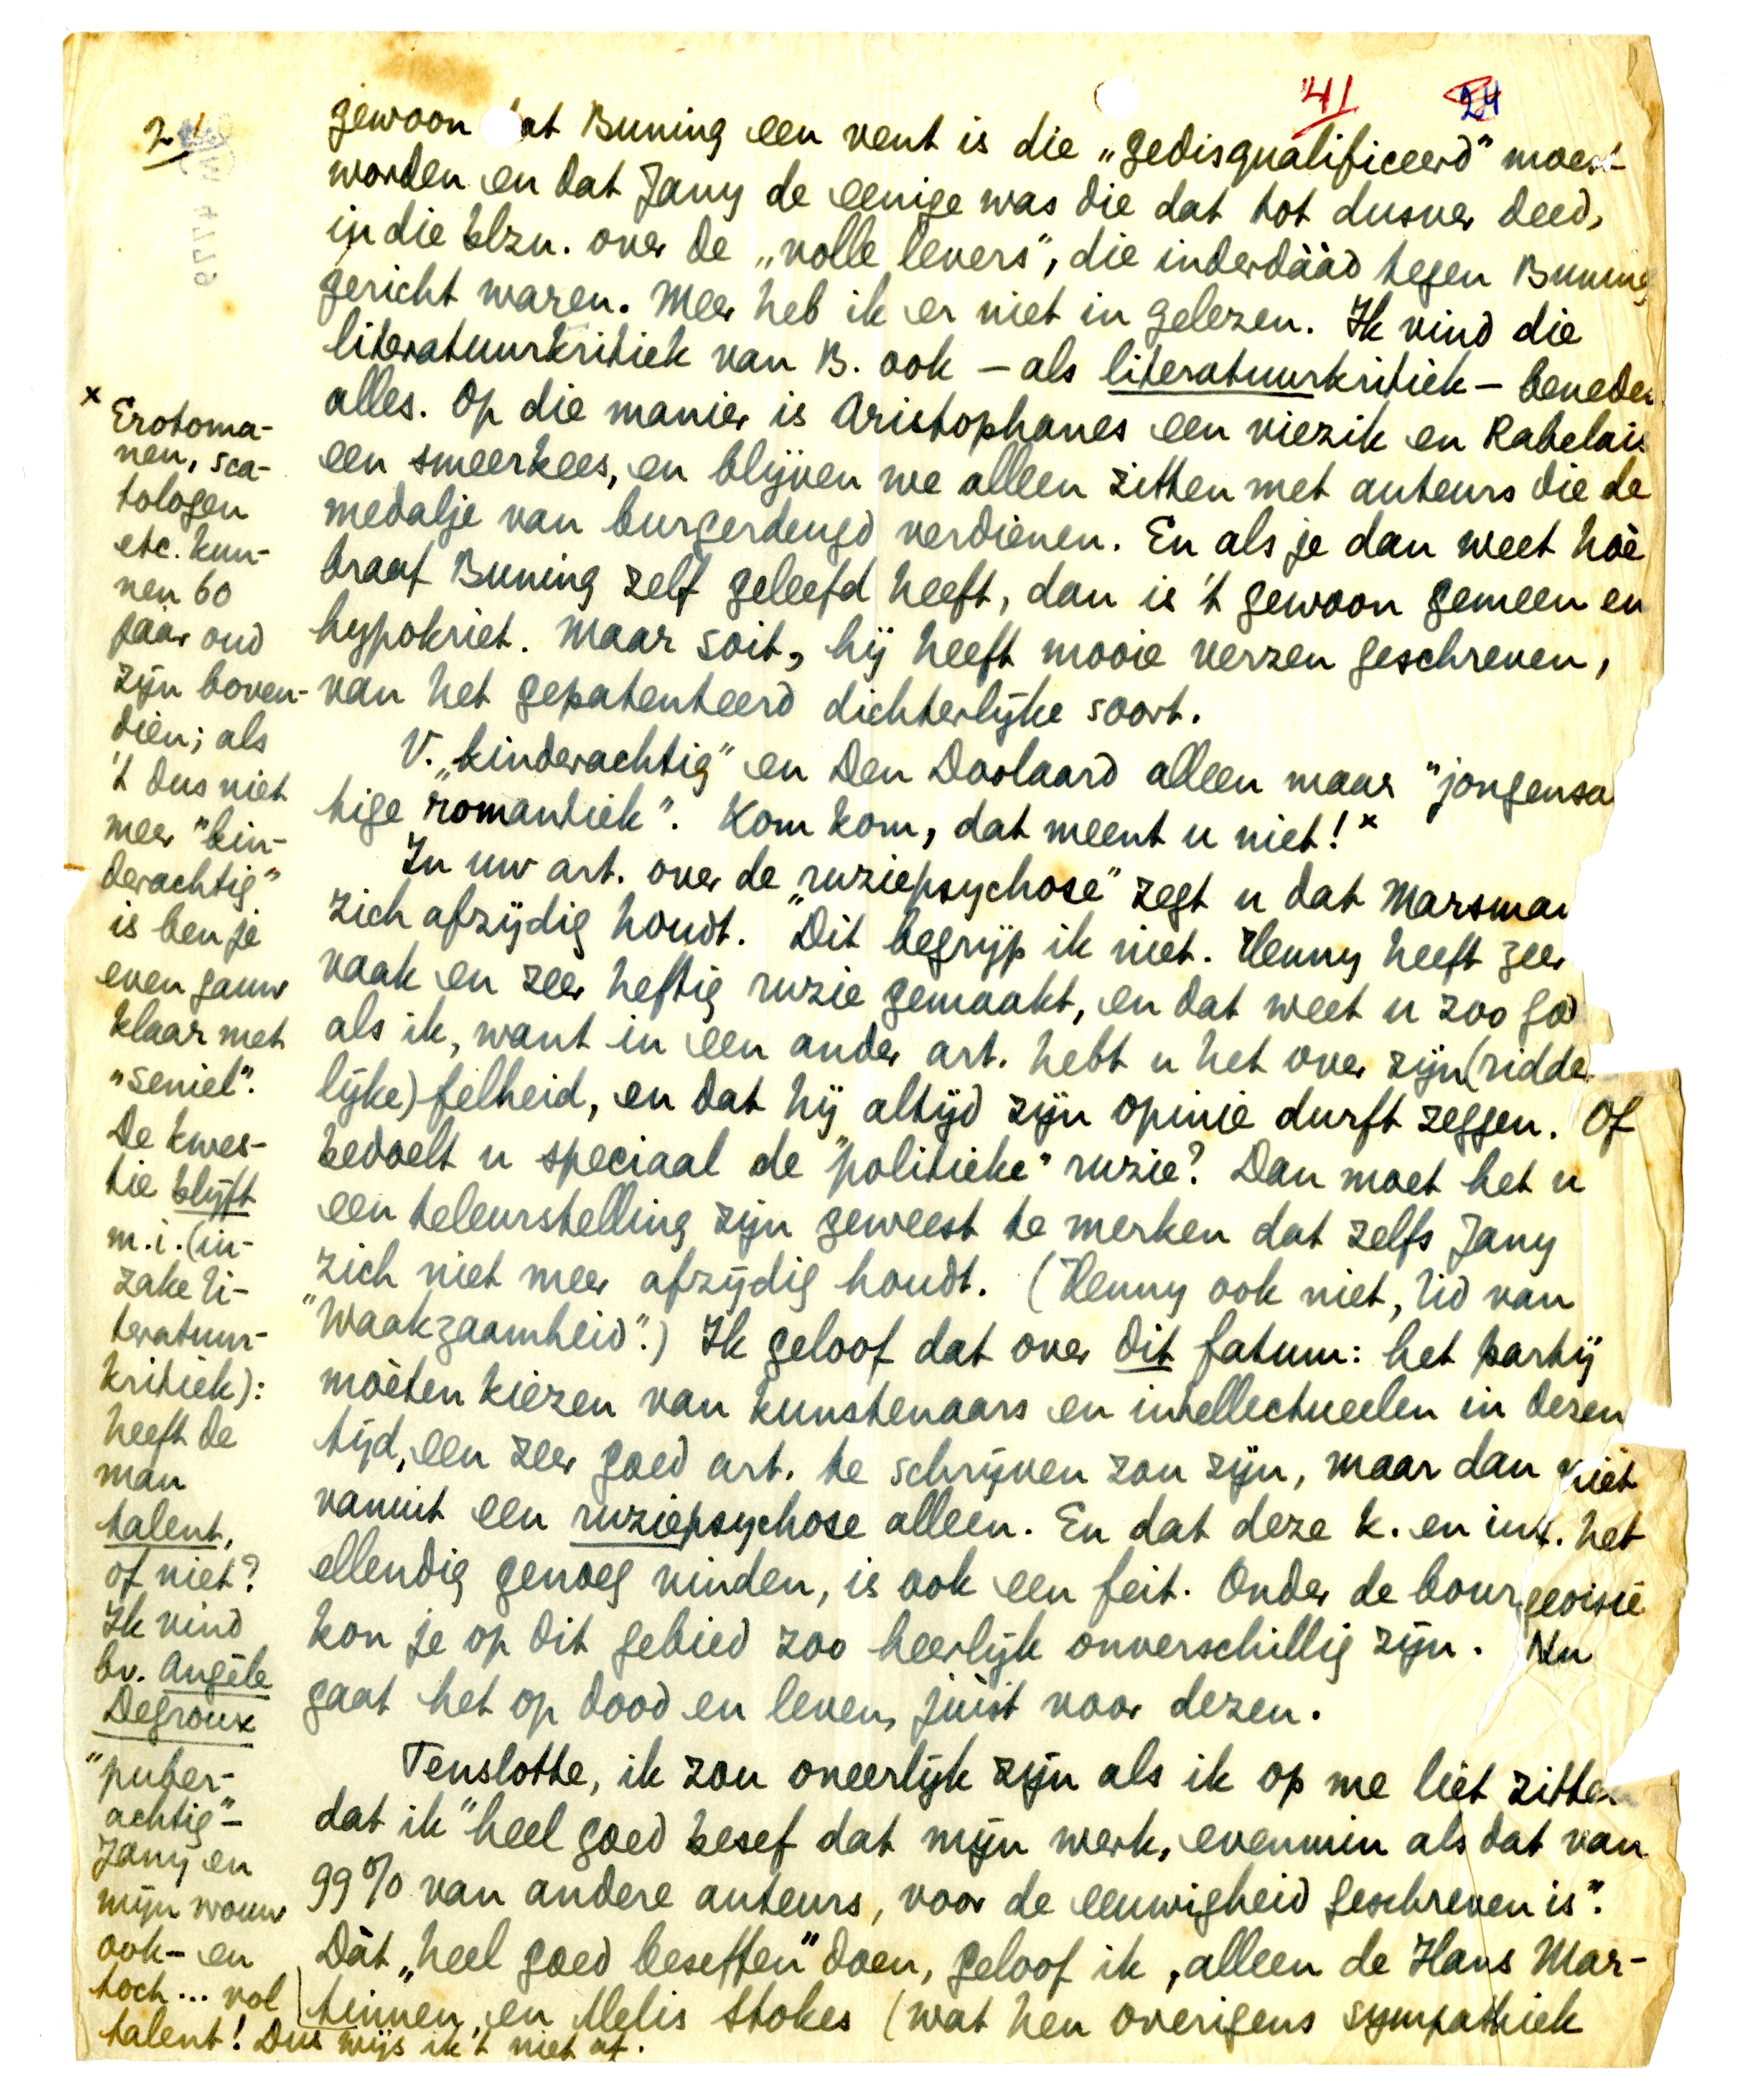 41
24
2
gewoon dat Buning een vent is die „gedisqualificeerd" moest
worden en dat Jany de eenige was die dat tot dusver deed,
in die blzn. over de „volle levers", die inderdààd tegen Buning
gericht waren. Meer heb ik er niet in gelezen. Ik vind die
literatuurkritiek van B. ook – als literatuurkritiek – beneden
alles. Op die manier is Aristophanes een viezik en Rabelais
een smeerkees, en blijven we alleen zitten met auteurs die de
medalje van burgerdeugd verdienen. En als je dan weet hoè
braaf Buning zelf geleefd heeft, dan is 't gewoon gemeen en
hypokriet. Maar soit, hij heeft mooie verzen geschreven,
van het gepatenteerd dichterlijke soort.
V. „kinderachtig" en Den Doolaard alleen maar "jongensa
tige romantiek". Kom kom, dat meent u niet! x
In uw art. over de "ruziepsychose" zegt u dat Marsman
zich afzijdig houdt. Dit begrijp ik niet. Henny heeft zeer
vaak en zeer heftig ruzie gemaakt, en dat weet u zoo goed
als ik, want in een ander art. hebt u het over zijn (ridder
lijke) felheid, en dat hij altijd zijn opinie durft zeggen. Of
bedoelt u speciaal de "politieke" ruzie? Dan moet het u
een teleurstelling zijn geweest te merken dat zelfs Jany
zich niet meer afzijdig houdt. (Henny ook niet, lid van
"Waakzaamheid".) Ik geloof dat over dit fatum: het partij
moèten kiezen van kunstenaars en intellectueelen in dezen
tijd, een zeer goed art. te schrijven zou zijn, maar dan niet
vanuit een ruziepsychose alleen. En dat deze k. en int. het
ellendig genoeg vinden, is ook een feit. Onder de bourgeoisie
kon je op dit gebied zoo heerlijk onverschillig zijn. Nu
gaat het op dood en leven, juist voor dezen.
Tenslotte, ik zou oneerlijk zijn als ik op me liet zitten
dat ik "heel goed besef dat mijn werk, evenmin als dat van
99% van andere auteurs, voor de eeuwigheid geschreven is".
Dàt „heel goed beseffen" doen, geloof ik, alleen de Hans Mar-
tinnen en Melis Stokes (wat hen overigens sympathiek
x Erotoma-
nen, sca-
tologen
etc. kun-
nen 60
jaar oud
zijn boven-
dien; als
't dus niet
meer "kin-
derachtig"
is ben je
even gauw
klaar met
„seniel".
De kwes-
tie blijft
m.i. (in-
zake li-
teratuur-
kritiek):
heeft de
man
talent,
of niet?
Ik vind
bv. Angèle
Degroux
"puber-
achtig" –
Jany en
mijn vrouw
ook – en
toch... vol
talent! Dus wijs ik 't niet af.